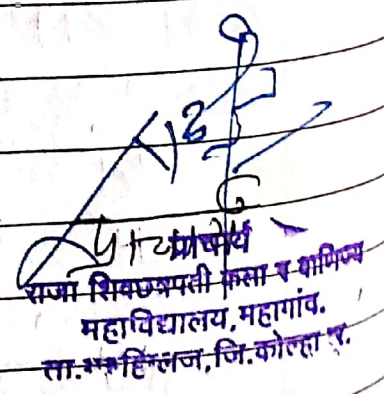 प्राचार्य
राजा शिवछत्रपती कला व वाणिज्य
महाविद्यालय, महागांव.
ता. हिंग्लज, जि. कोल्हापूर.